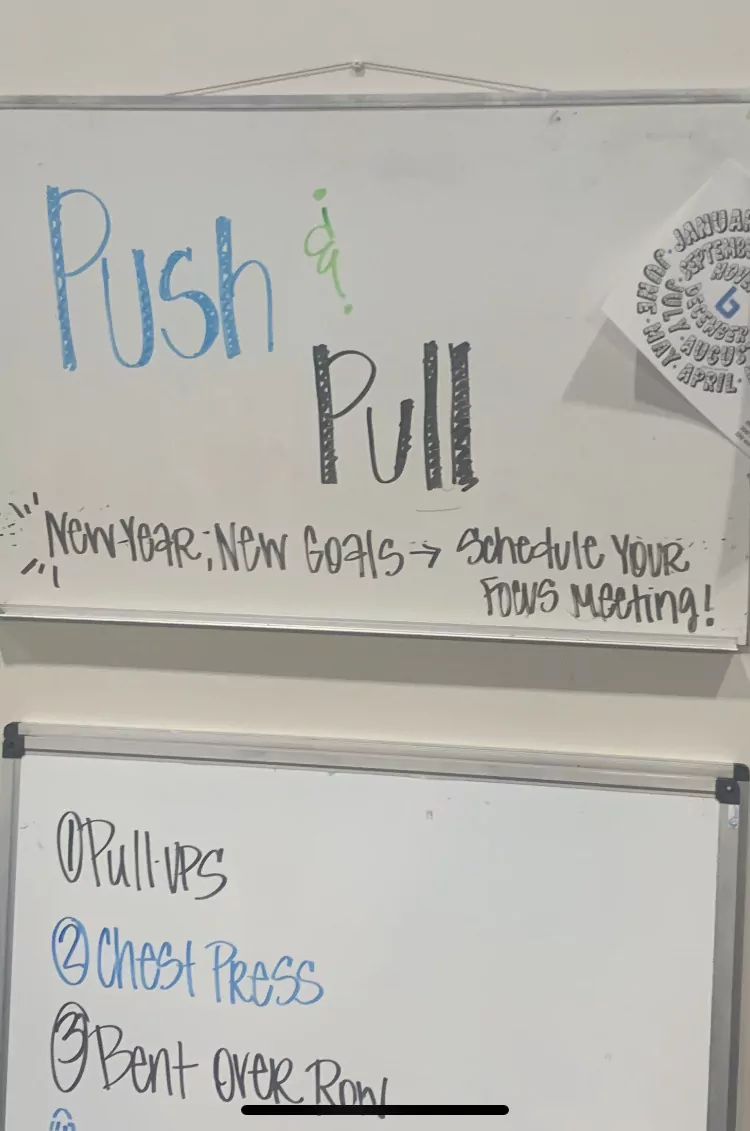 Push
&
Pull
New Year, New Goals → Schedule Your
Focus Meeting!
JANUAR
SEPTEMB
NOVE
DECEMBER
AUGUS
JULY
JUNE
MAY · APRIL ·
① Pull-ups
② Chest Press
③ Bent Over Row